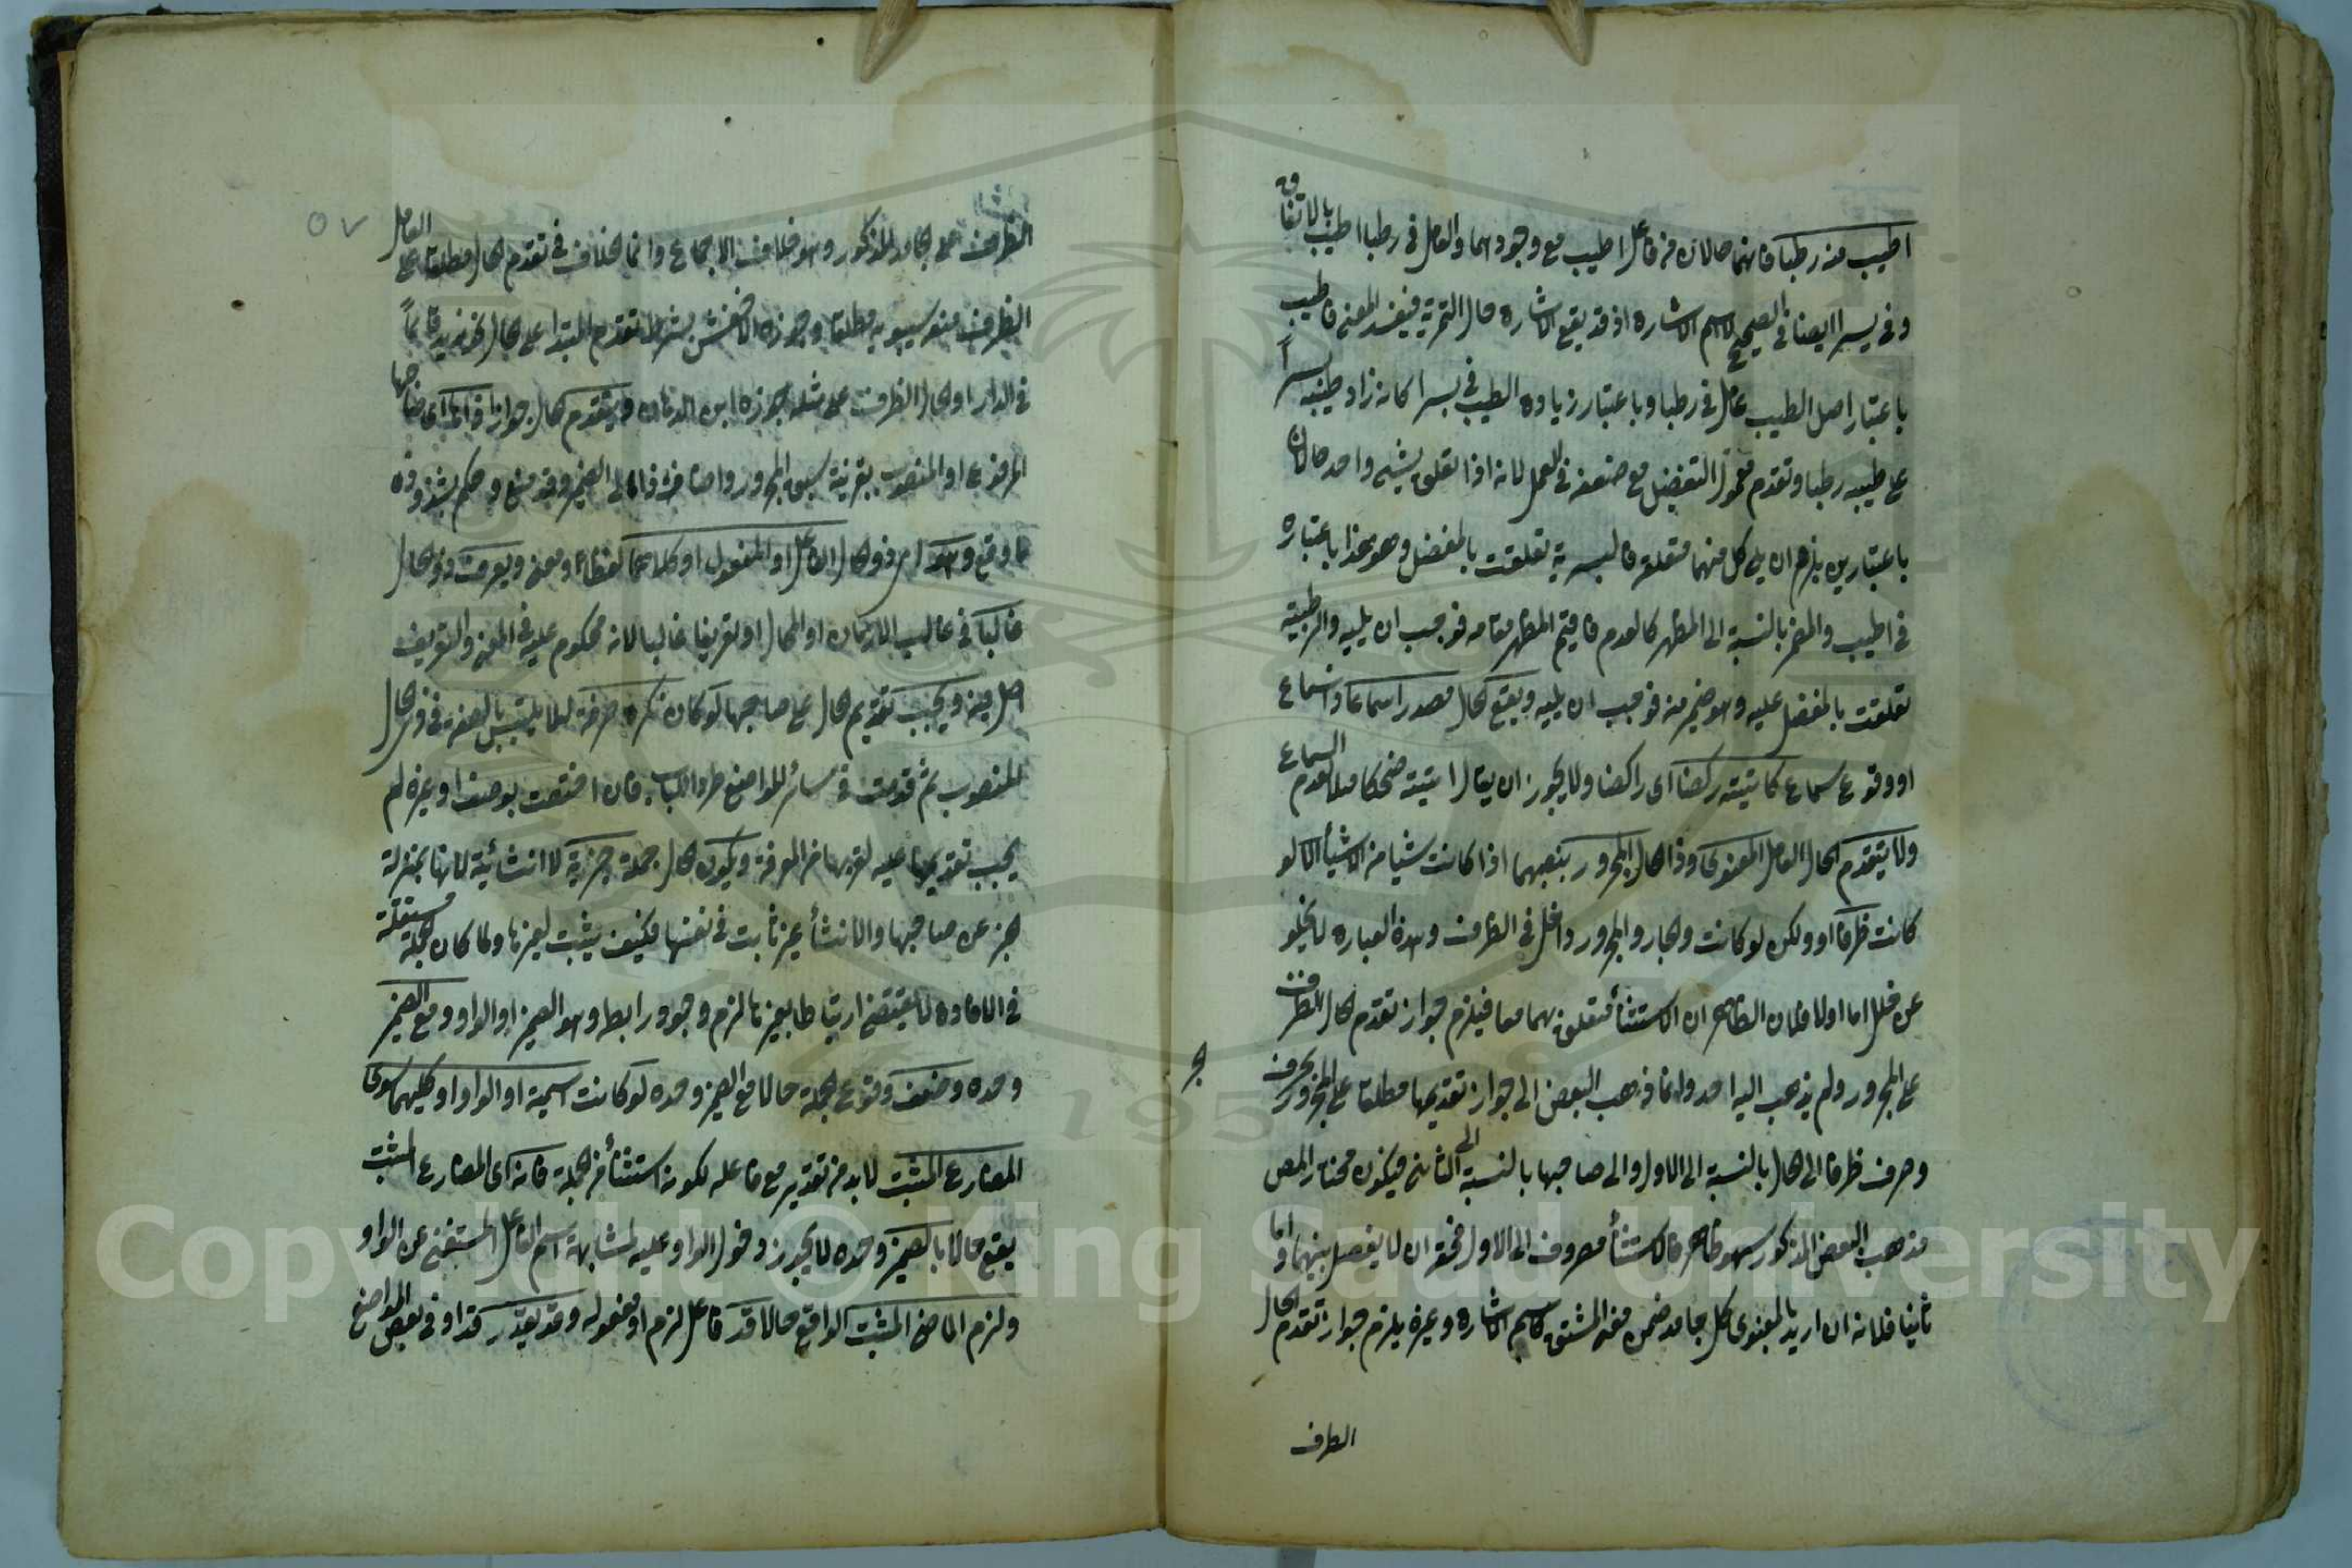 اطيب منه رطبا فانهما حالان من فاعل اطيب مع وجودهما والعامل في رطبا اطيب بالاتفاق
وفي بسرا ايضا في الصحيح لا اسم الاشاره اذ قد يقع الاشاره حال التمرية فيفسد المعنى فاطيب
باعتبار اصل الطيب عامل في رطبا وباعتبار زياده الطيب في بسرا كانه زاد طيبه بسراً
على طيبه رطبا وتقدم معمول التفضيل مع ضعفه في العمل لانه اذا تعلق بشيء واحد حالان
باعتبارين يلزم ان يلي كل منهما متعلقه فالبسرية تعلقت بالمفضل وهو هذا باعتباره
في اطيب والمضمر بالنسبة الى المظهر كالعدم فاقيم المظهر مقامه فوجب ان يليه والرطبية
تعلقت بالمفضل عليه وهو ضمير منه فوجب ان يليه ويقع الحال مصدرا سماعا
او وقوع سماع كاتيته ركضا اى راكضا ولا يجوز ان يقال اتيته ضحكا لعدم السماع
ولا يتقدم الحال العامل المعنوى وذا الحال المجرور بنصبهما اذا كانت شيا من الاشيأ الا لو
كانت ظرفا او ولكن لو كانت والجار والمجرور داخل في الظرف وهذه العباره لا يخلو
عن خلل اما اولا فلان الظاهر ان الاستثنأ متعلق بهما معا فيلزم جواز تقدم الحال الظرف
على المجرور ولم يذهب اليه احد وانما ذهب البعض الى جواز تقديمها مطلقا على المجرور بحرف
وصرف ظرفا الى الحال بالنسبة الى الاول والى صاحبها بالنسبة الى الثانى فيكون مختار المص
مذهب البعض المذكور سهو ظاهر فالاستثنأ مصروف الى الاول فحقه ان لا يفصل بينهما واما
ثانيا فلانه ان اريد بالمعنوى كل جامد ضمن معنى المشتق كاسم الاشاره وغيره يلزم جواز تقدم الحال
الظرف
٥٧
الظرف على الجامد المذكور وهو خلاف الاجماع وانما الخلاف في تقدم الحال مطلقا على العامل
الظرف منعه سيبويه مطلقا وجوزه الاخفش بشرط تقدم المبتدا على الحال نحو زيد قائماً
في الدار او الحال الظرف على مثله جوزه ابن الدهان ويتقدم الحال جوازا صاحبها
المرفوع او المنصوب بقرينة سبق المجرور واضافة ذا الى الضمير وقد منع وحكم بشذوذه
ما وقع وهو اى ذو الحال الفاعل او المفعول او كلاهما لفظا او معنى ويعرف ذو الحال
غالبا في غالب الازمان او المحال او تعريفا غالبا لانه محكوم عليه في المعنى والتعريف
اصل فيه ويجب تقديم الحال على صاحبها لو كان نكره صرفة لئلا يلتبس بالصفه في ذى الحال
المنصوب ثم قدمت في سائر المواضع طردا للباب فان اختصت بوصف او غيره لم
يجب تقديمها عليه لقربها من المعرفة ويكون الحال جملة خبرية لا انشائية لانها بمنزلة
خبر عن صاحبها والانشأ غير ثابت في نفسها فكيف يثبت لغيرها ولما كان الجملة مستقلة
في الافاده لا يقتضى ارتباطا بغيرها لزم وجود رابط وهو الضمير او الواو ومع الضمير
وحده وضعف وقوع الجملة حالا مع الضمير وحده لو كانت اسمية او الواو او كليهما سوى
المضارع المثبت لابد من تقديره مع فاعله لكونه استثنأ من الجملة فانه اى المضارع المثبت
يقع حالا بالضمير وحده لا يجوز دخول الواو عليه لمشابهة اسم الفاعل المستغنى عن الواو
ولزم الماضى المثبت الواقع حالا قد فاعل لزم او مفعوله وقد يقدر قد او في بعض المواضع
Copyright © King Saud University
195